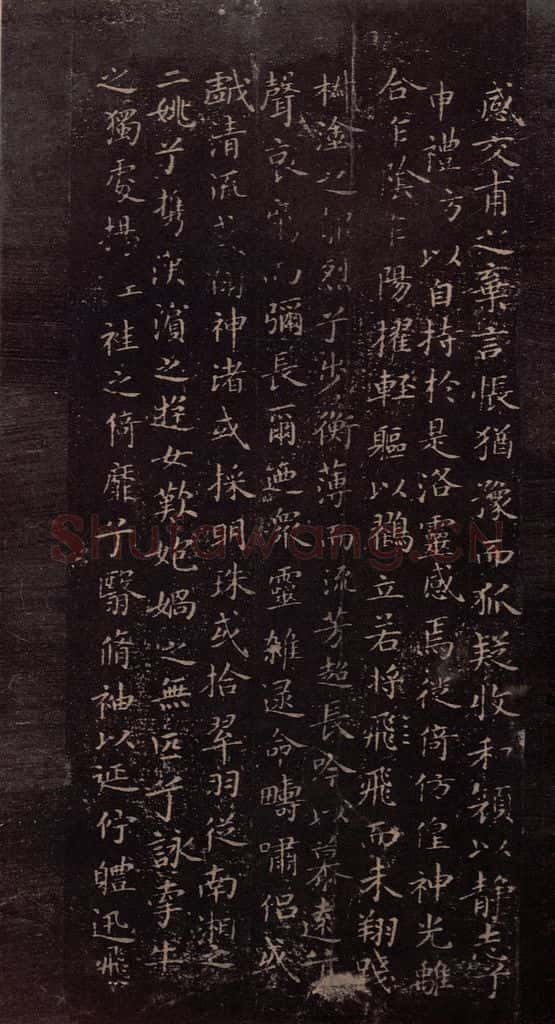 感交甫之棄言悵猶豫而狐疑收和顏以静志兮
申禮方以自持於是洛靈感焉徙倚仿偟神光離
合乍陰乍陽擢輕軀以鶴立若將飛飛而未翔踐
椒塗之郁烈兮步衡薄而流芳超長吟以慕遠兮
聲哀厲而彌長爾迺衆靈雜遝命疇嘯侶或
戲清流或翔神渚或採明珠或拾翠羽從南湘之
二姚兮携漢濱之遊女歎媱媧之無匹兮詠牽牛
之獨處揚 袿之倚靡兮翳脩袖以延佇軆迅飛
Shufawang.CN